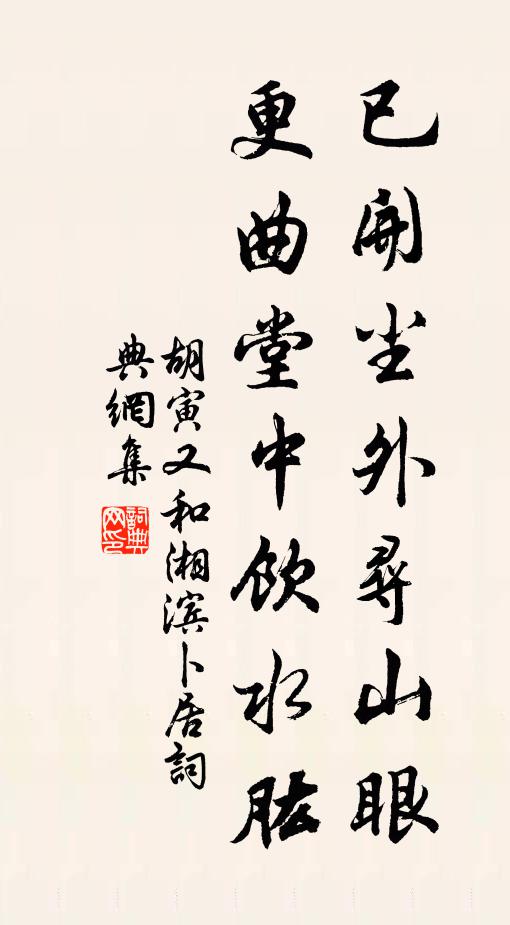 已開尘外尋山眼
更曲堂中飲水肱
胡寅又和湘滨卜居詞
典網集
詞典网印